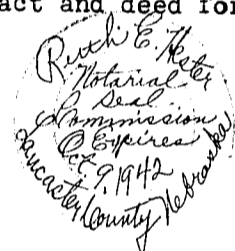 act and deed for
Ruth E. Hester
Notarial
Seal
Commission
Expires
Oct. 9, 1942
Lancaster County Nebraska